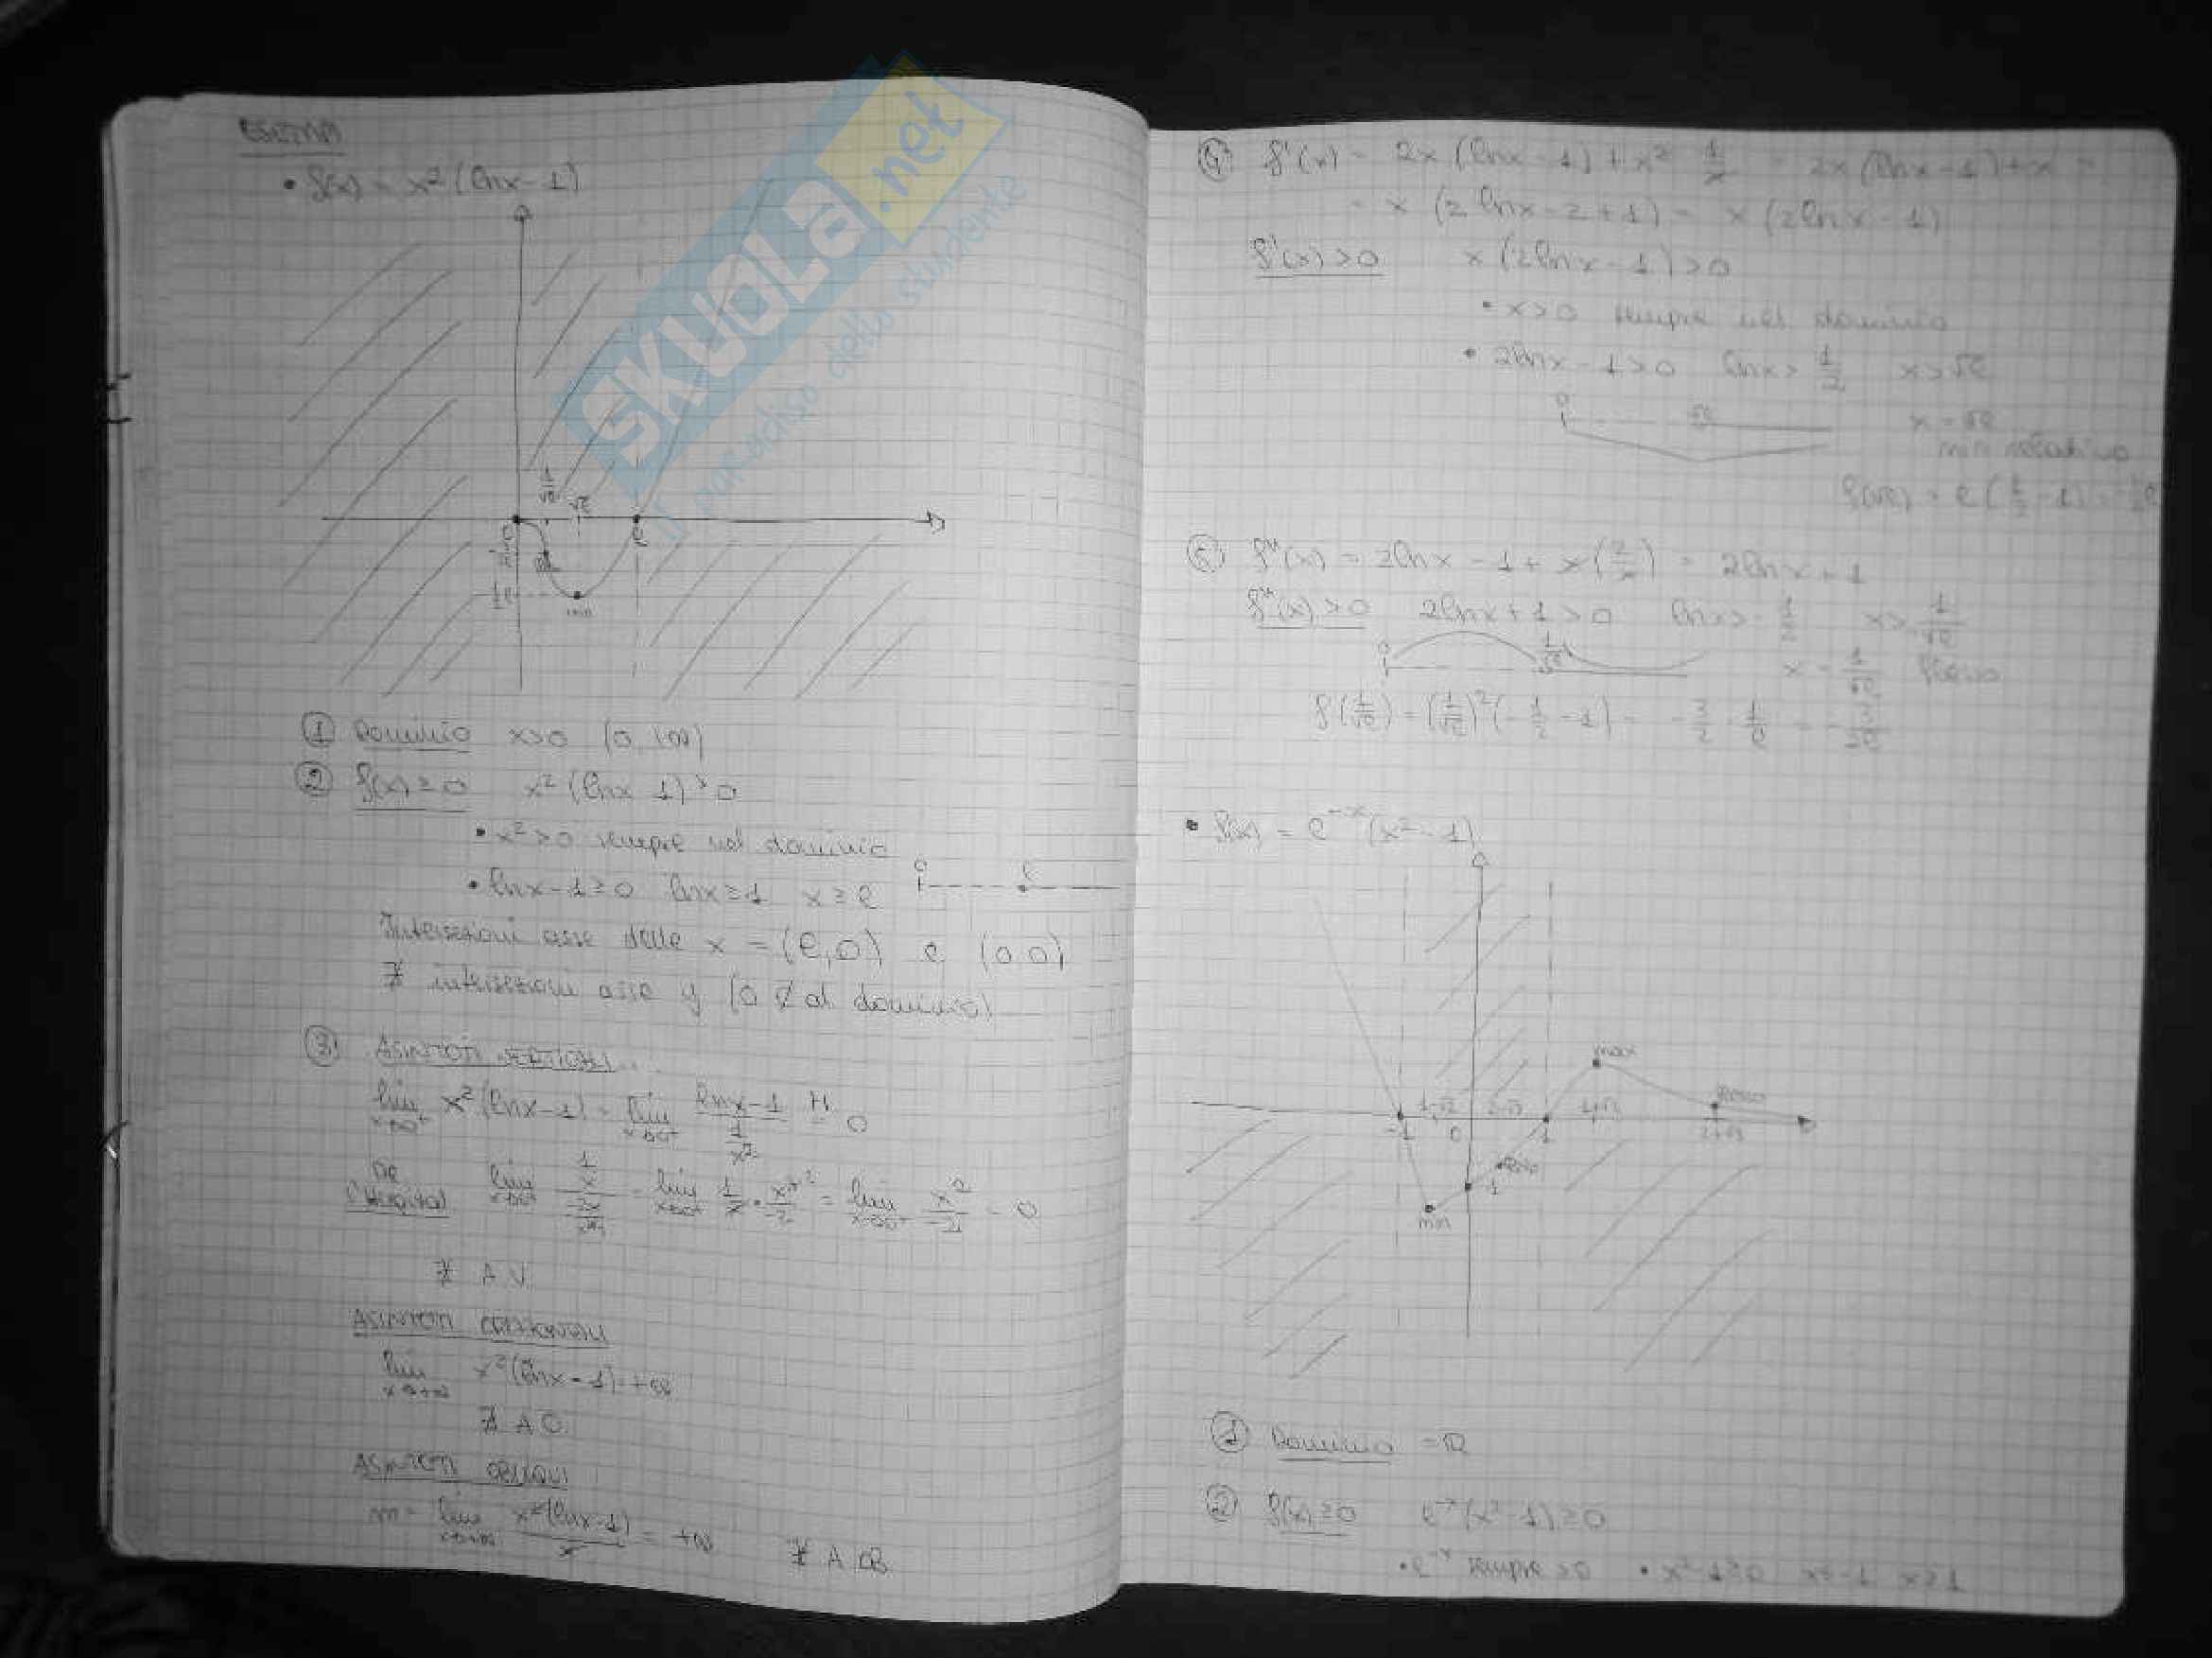 ESEMPI
• f(x) = x²(lnx-1)
1/√e
√e
0
e
-3/2e
-1/2 e
min
① Dominio x>0 (0,+∞)
② f(x)≥0 x²(lnx-1)≥0
• x²>0 sempre nel dominio
• lnx-1≥0 lnx≥1 x≥e
0 e
Intersezioni asse delle x = (e,0) e (0,0)
∄ intersezioni asse y (0 ∉ al dominio)
③ ASINTOTI VERTICALI
lim x→0⁺ x²(lnx-1) = lim x→0⁺ (lnx-1)/(1/x²) H= 0
DE L'HOPITAL lim x→0⁺ = lim x→0⁺ 1/x · x³/-2 = lim x→0⁺ x²/-2 = 0
∄ A.V.
ASINTOTI ORIZZONTALI
lim x→+∞ x²(lnx-1) = +∞
∄ A.O.
ASINTOTI OBLIQUI
m = lim x→+∞ x²(lnx-1)/x = +∞ ∄ A.OB
④ f'(x) = 2x(lnx-1)+x² 1/x = 2x(lnx-1)+x =
= x(2lnx-2+1) = x(2lnx-1)
f'(x)>0 x(2lnx-1)>0
• x>0 sempre nel dominio
• 2lnx-1>0 lnx>1/2 x>√e
0 √e x=√e
min relativo
f(√e) = e(1/2-1) = -1/2 e
f''(x) = 2lnx-1+x(2/x) = 2lnx+1
f''(x)>0 2lnx+1>0 lnx>-1/2 x>1/√e
0 1/√e x=1/√e flesso
f(1/√e) = (1/√e)²(-1/2-1) = -3/2 · 1/e = -3/2e
• f(x) = e⁻ˣ(x²-1)
max
flesso
-1 1-√2 0 2-√3 1 1+√2 2+√3
flesso
-1
min
① Dominio = ℝ
② f(x)≥0 e⁻ˣ(x²-1)≥0
• e⁻ˣ sempre >0 • x²-1≥0 x≤-1 x≥1
SKUOLA.net
Il paradiso dello studente